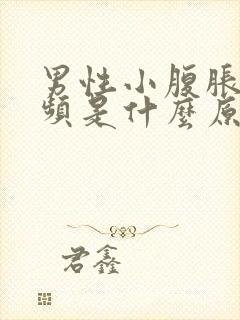 男性小腹脹
頻是什麼原
君鑫